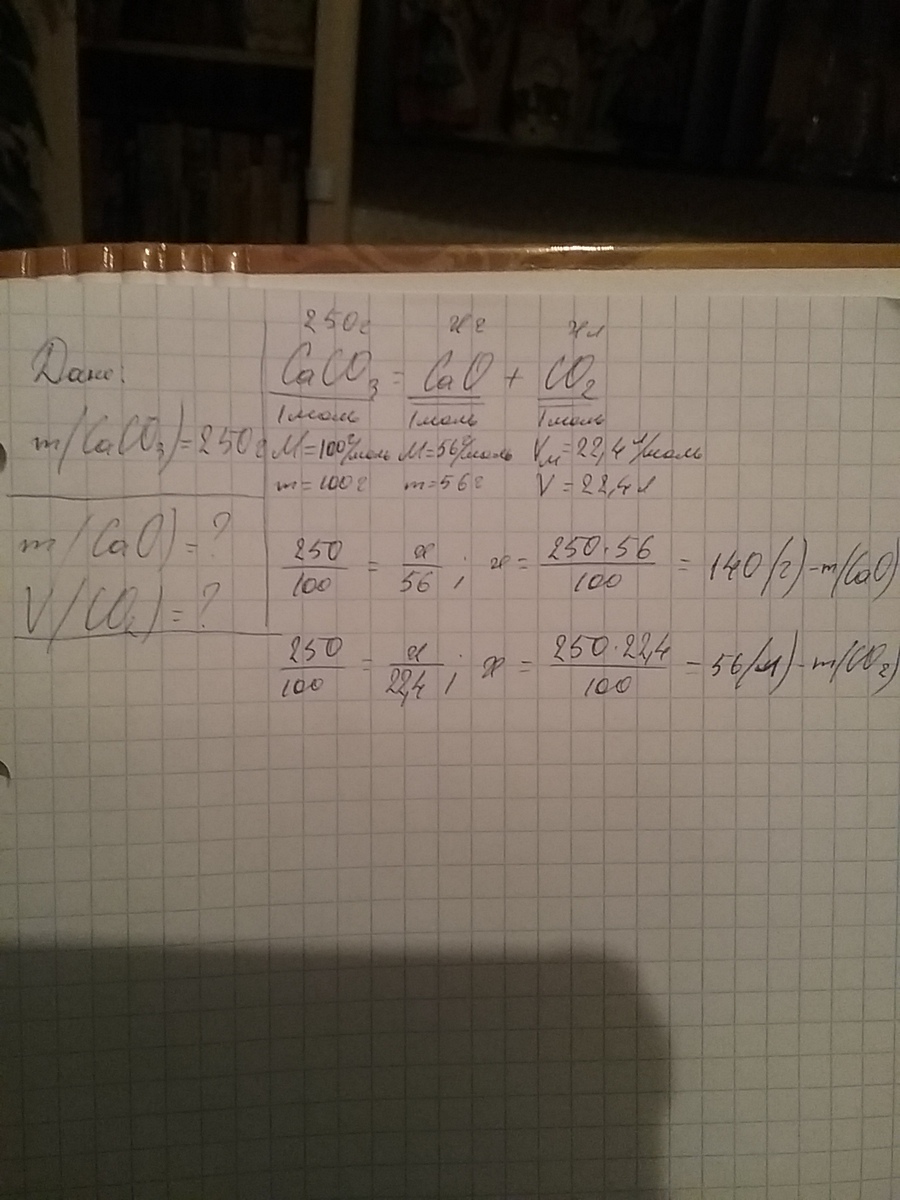 Дано:
m(CaCO₃)=250г
m(CaO)=?
V(CO₂)=?
250г xг xл
CaCO₃ = CaO + CO₂
1моль 1моль 1моль
M=100г/моль M=56г/моль Vм=22,4л/моль
m=100г m=56г V=22,4л
250/100 = x/56; x = 250·56/100 = 140(г)-m(CaO)
250/100 = x/22,4; x = 250·22,4/100 = 56(л)-m(CO₂)